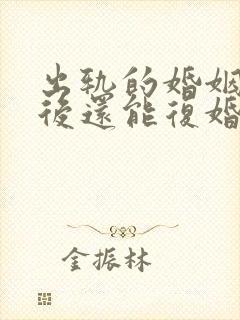 出軌的婚姻
後還能復婚
金振林